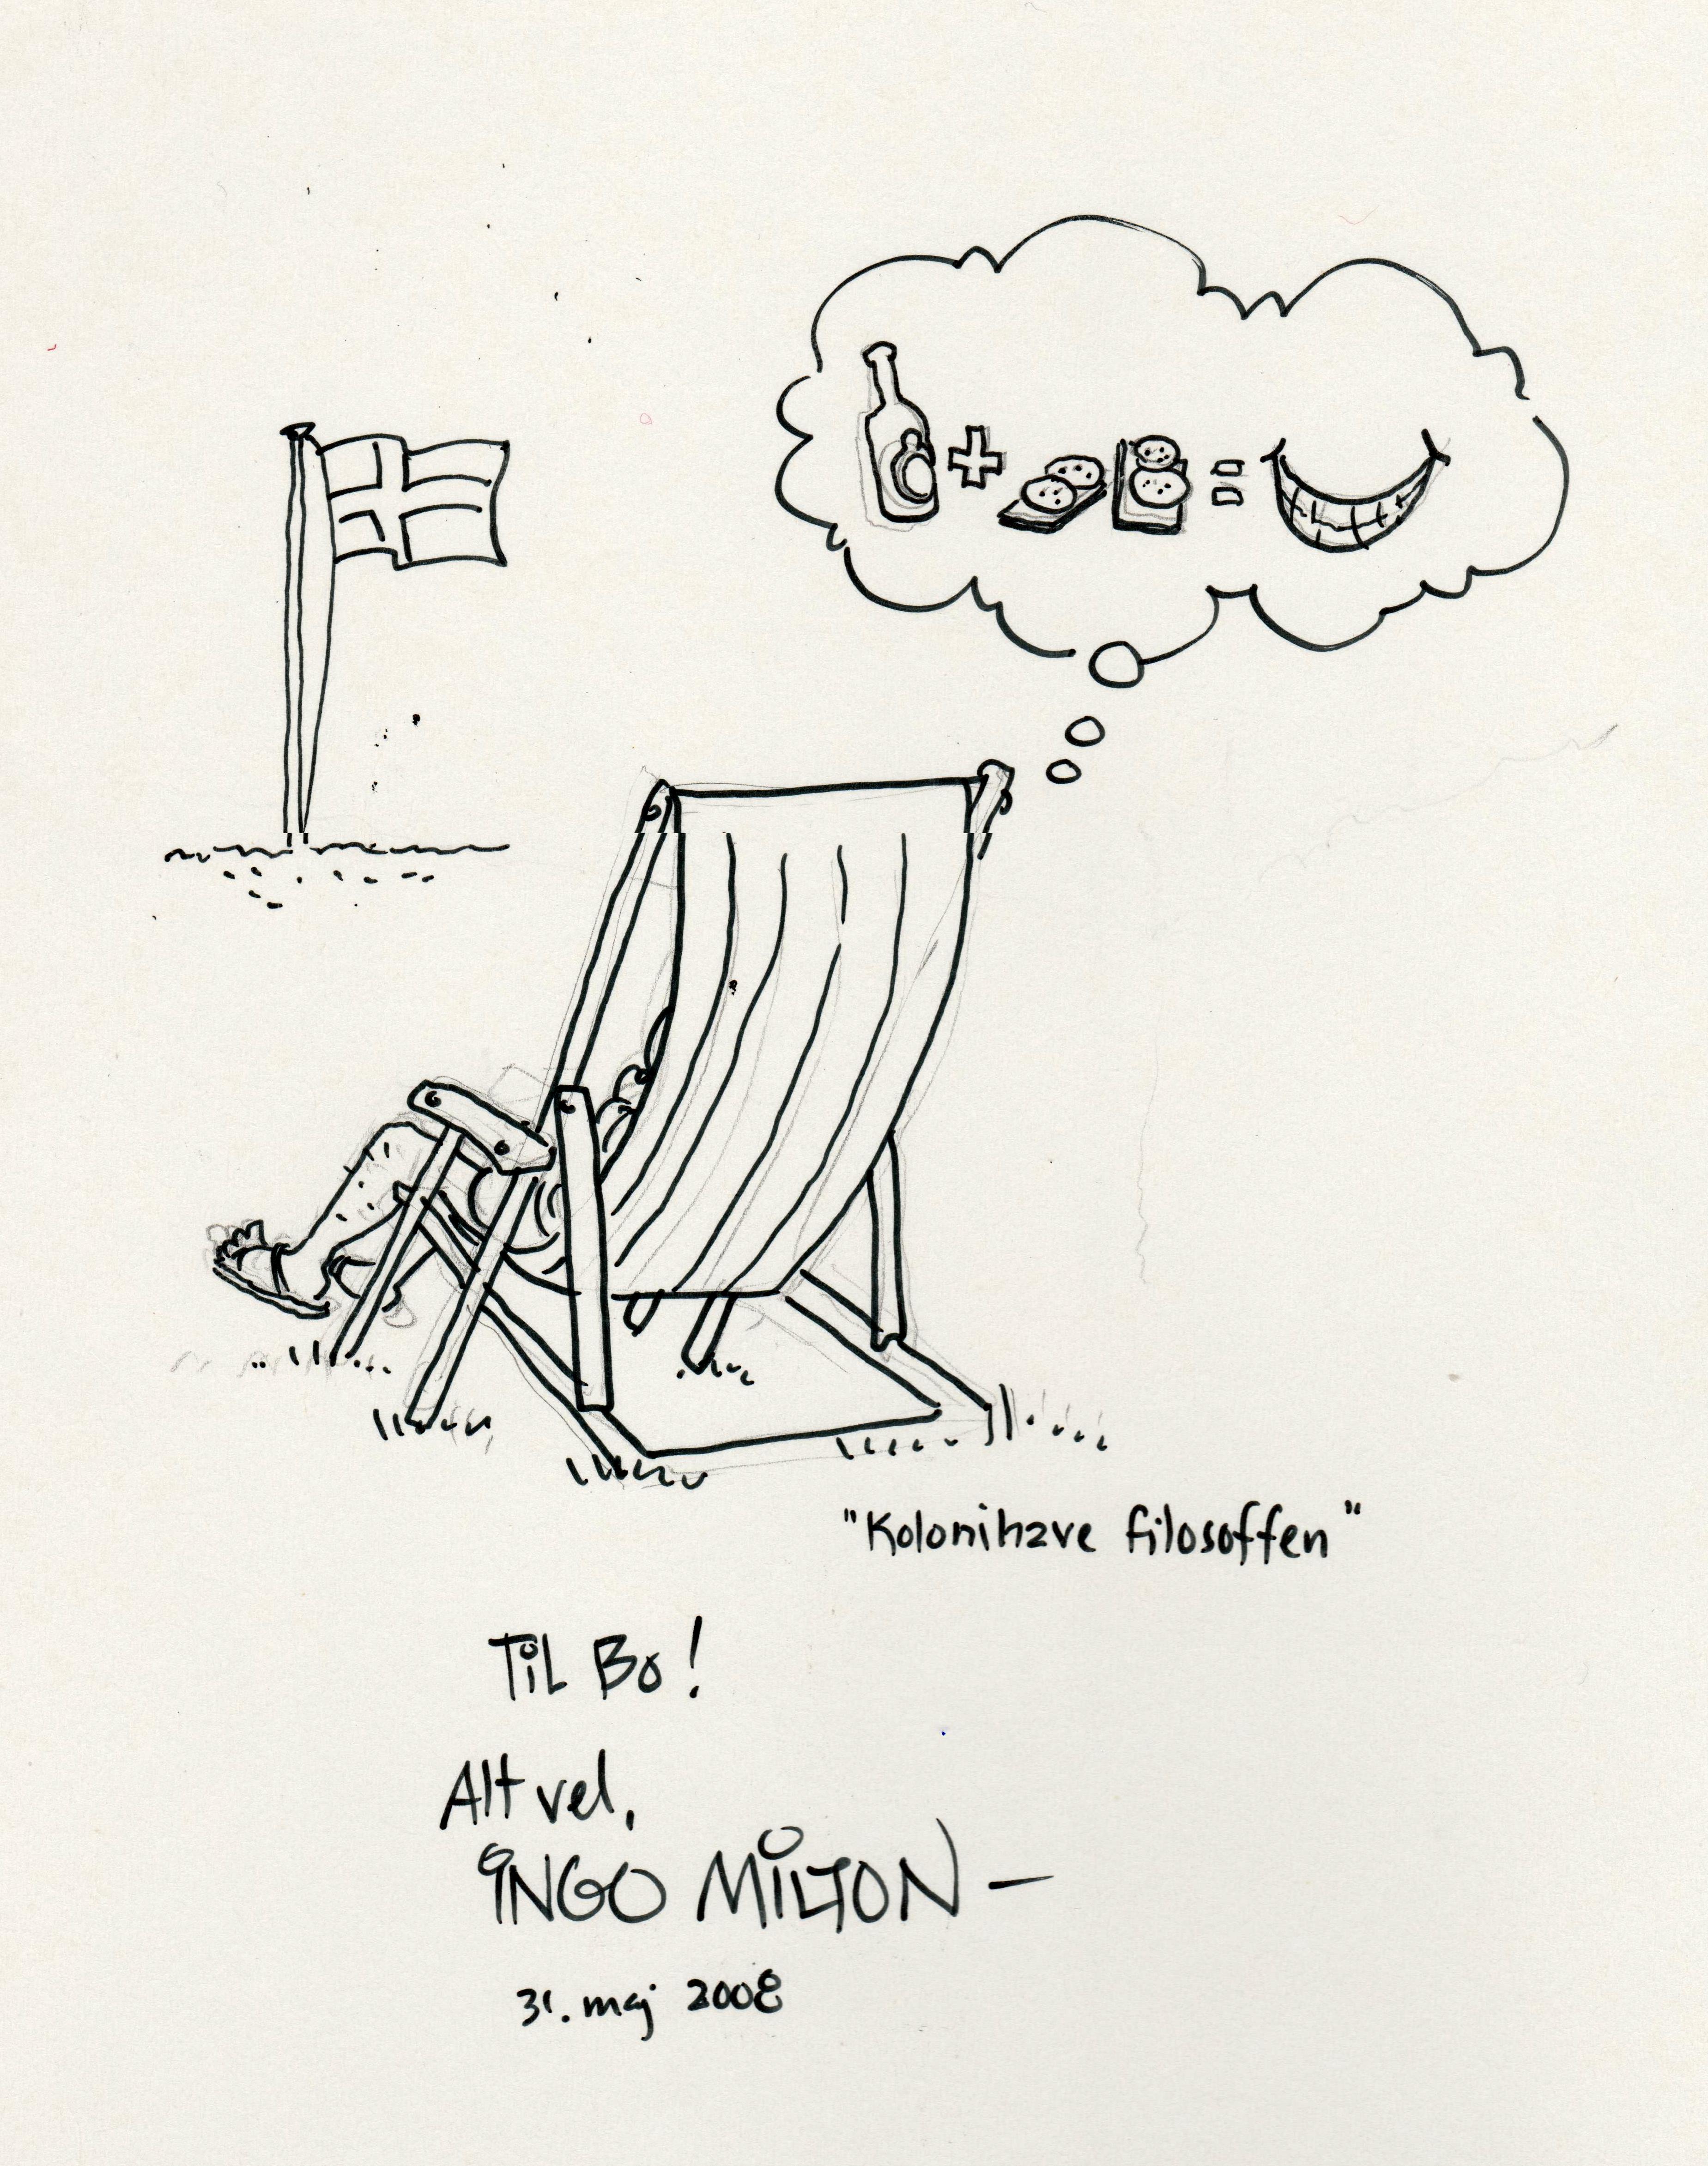 "Kolonihave filosoffen"
Til Bo!
Alt vel,
INGO MILTON –
31. maj 2008